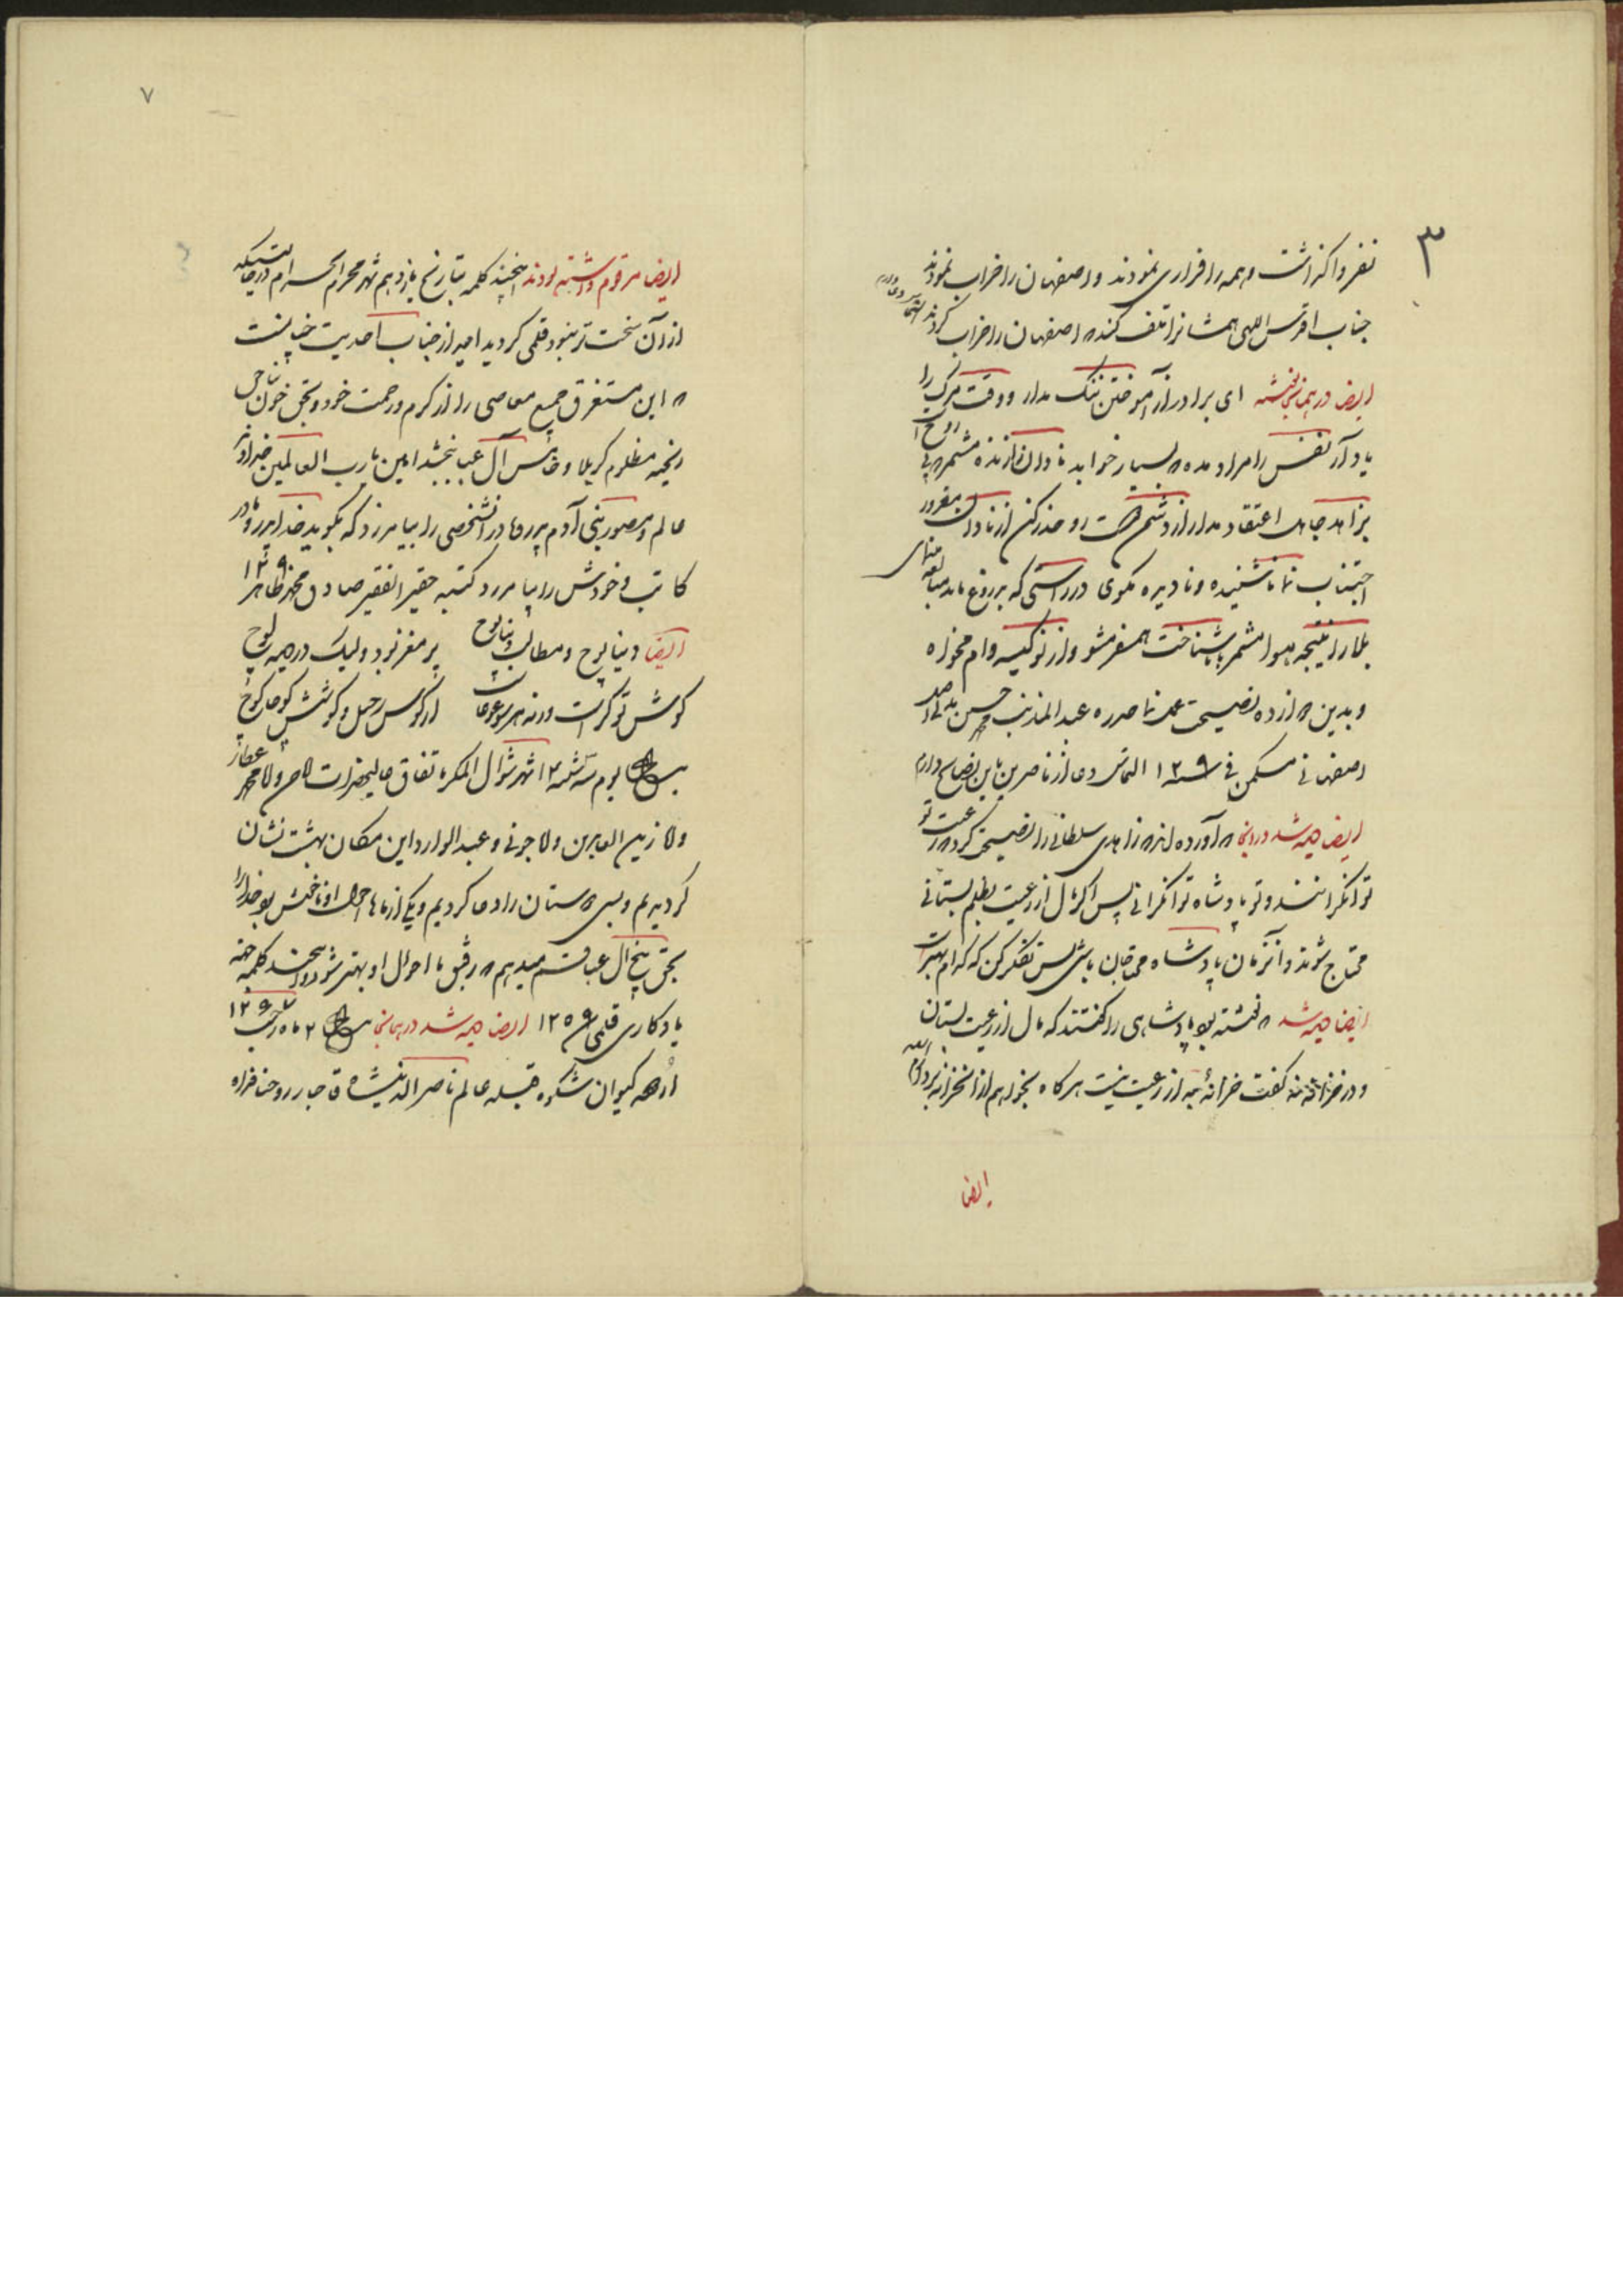 ۳
نفر واگذاشت و همه را فراری نمودند و اصفهان را خراب نمودند
جناب اقدس الهی همشانرا تلف کند که اصفهان را خراب کردند التماس دعا دارم
ایضا در همانجا نوشته ای برادر از آموختن ننگ مدار و وقت مرگ را
یاد آر نفس را مراد مده که بسیار خواهد نادان را زنده مشمر
بزاهد جاهل اعتقاد مدار از دشمن دوست رو حذر کن از نادان مغرور
اجتناب نما ناشنیده و نادیده مگوی در راستی که بدروغ ماند مبالغه منمای
هوا مشمر با ناشناخت همسفر مشو و از نو کیسه وام مخواه
و بدین دوازده نصیحت عمل نما حرره عبد المذنب حسن
اصفهانی مسکن فی سنه ۱۲۹ التماس دعا از ناظرین این نصایح دارم
ایضا دیده شد در اینجا که آورده اند که زاهدی سلطانی را نصیحتی کرد که رعیت تو
توانگرانند و تو پادشاه توانگرانی پس اگر مال از رعیت بظلم بستانی
محتاج شوند و آنزمان پادشاه محتاجان باشی پس تفکر کن که کدام بهتر است
ایضا دیده شد که نوشته بود پادشاهی را گفتند که مال از رعیت بستان
و در خزانه نه گفت خزانهٔ به از رعیت نیست هرگاه بخواهم از آن خزانه بردارم
ایضا
۷
ایضا مرقوم داشته بودند اینچند کلمه بتاریخ یازدهم شهر محرم الحرام در حالتیکه
از آن سخت تر نبود قلمی گردید امید از جناب احدیت چنانست
که این مستغرق جمیع معاصی را از کرم و رحمت خود و بحق خون ناحق
ریخته مظلوم کربلا و خامس آل عبا ببخشد امین یا رب العالمین خداوند
عالم و مصور بنی آدم پدر و مادر آنشخصی را بیامرزد که بگوید خدا پدر و مادر
کاتب و خودش را بیامرزد کتبه حقیر الفقیر صادق محمد طاهر ۱۲۹
ایضا دنیا پوچ و مطالب دنیا پوچ پر مغز نبود ولیک در دیده پوچ
گوش تو کر است ورنه هر سو غوغاست از کوس رحیل و کوشش کوچا کوچ
بتاریخ یوم سه شنبه ۱۲ شهر شوال المکرم باتفاق عالیحضرات
ولا زین العابدین ولا جونی و عبد وارد این مکان بهشت نشان
گردیدیم و بسی دوستان را دعا کردیم و یکی از ماها احوال او ناخوش بود خدا را
بحق پنج آل عبا قسم میدهم که رفیق ما احوال او بهتر شود و اینچند کلمه جهته
یادگاری قلمی شد ۱۲۵۹ ایضا دیده شد در همانجا بتاریخ ۲ ماه رجب ۱۲۹۷
کیوان شکوه قبله عالم ناصر الدینشاه قاجار روحنا فداه